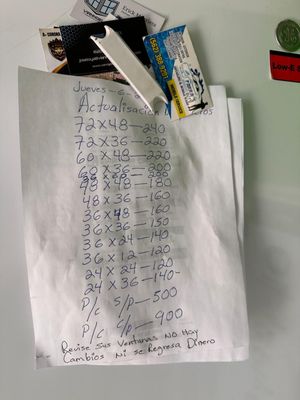 Erick
(562)
Jueves-6-
Actualisacion
72x48—240
72x36—220
60x48—220
60x36—200
48x48—180
48x36—160
36x48—160
36x36—150
36x24—140
36x12—120
24x24—120
24x36—140
P/c S/p—500
P/c c/p—900
Revise Sus Ventanas NO Hay
Cambios Ni se Regresa Dinero
Low-E